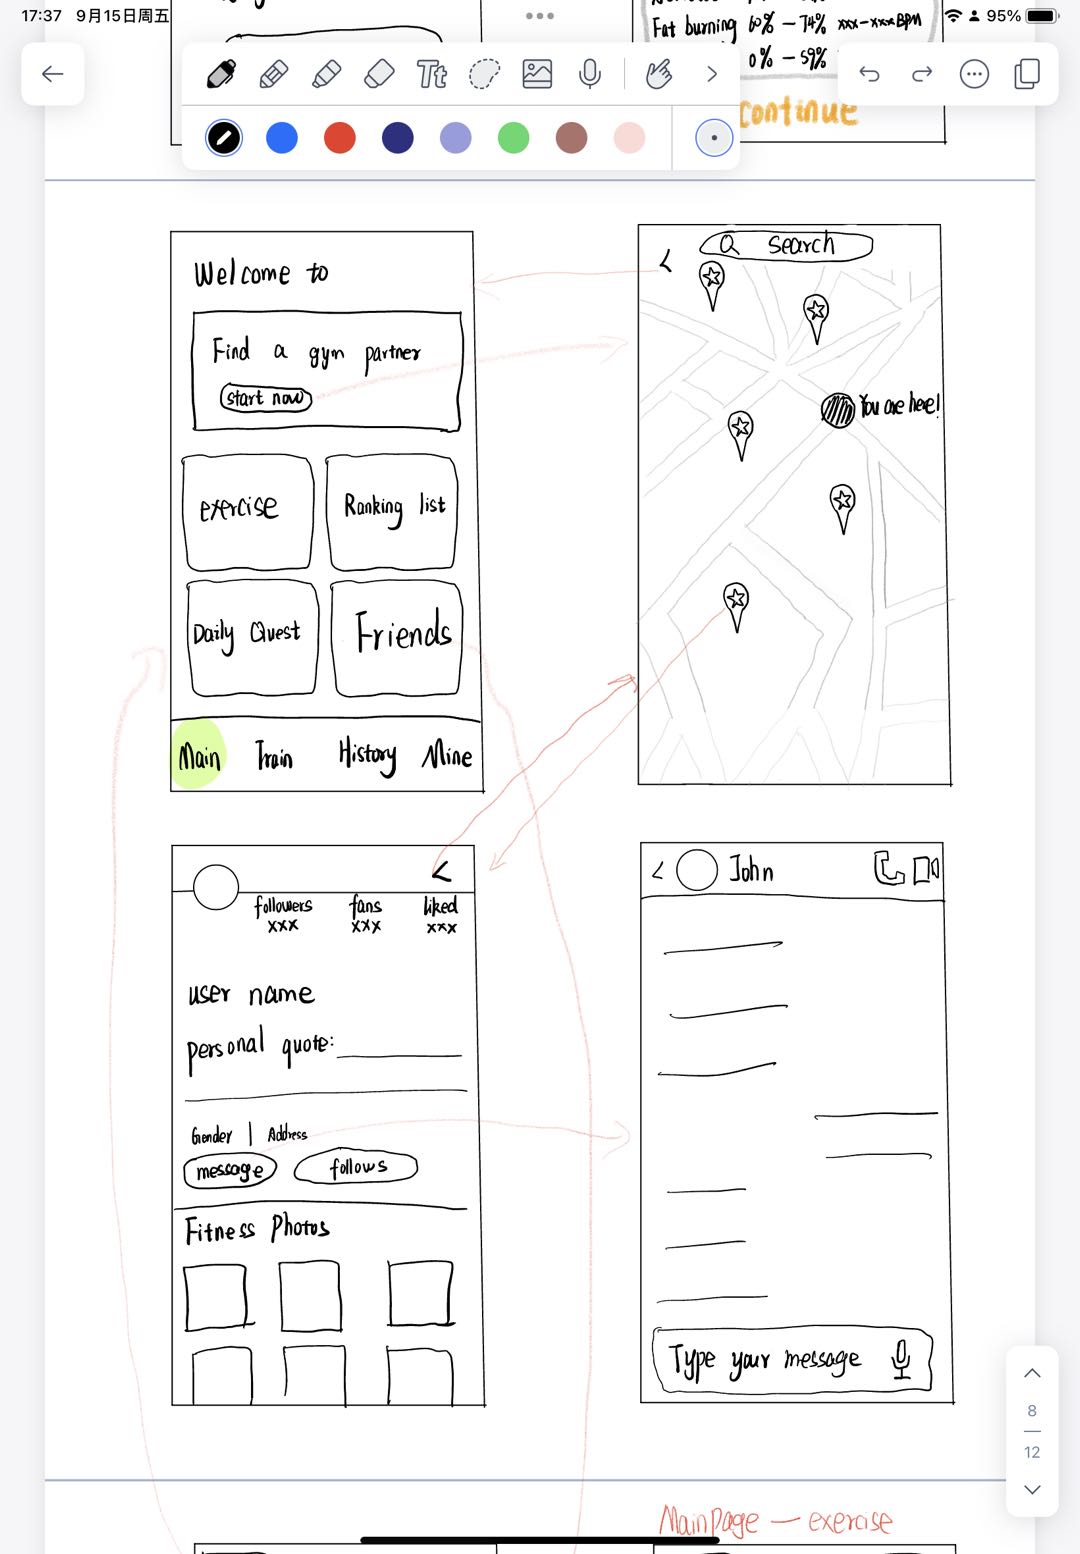 17:37 9月15日周五
95%
Fat burning 60% — 74% xxx-xxxBPM
0% — 59%
Continue
Tt
Welcome to
Find a gym partner
start now
exercise
Ranking list
Daily Quest
Friends
Main Train History Mine
Search
You are here!
followers fans liked
xxx xxx xxx
user name
personal quote:
Gender | Address
message follows
Fitness Photos
John
Type your message
8
12
Mainpage — exercise